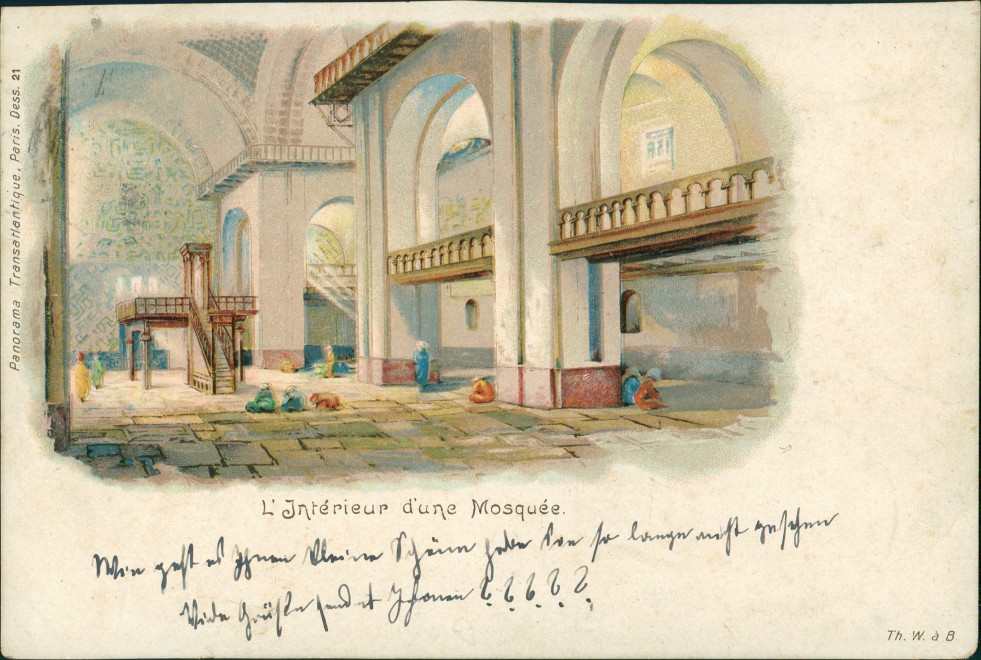 Panorama Transatlantique, Paris. Dess. 21
L'Intérieur d'une Mosquée.
Wie geht es Ihnen kleine Schöne habe Sie so lange nicht gesehen
Viele Grüße sendet Ihnen ? ? ? ? ?
Th. W. à B